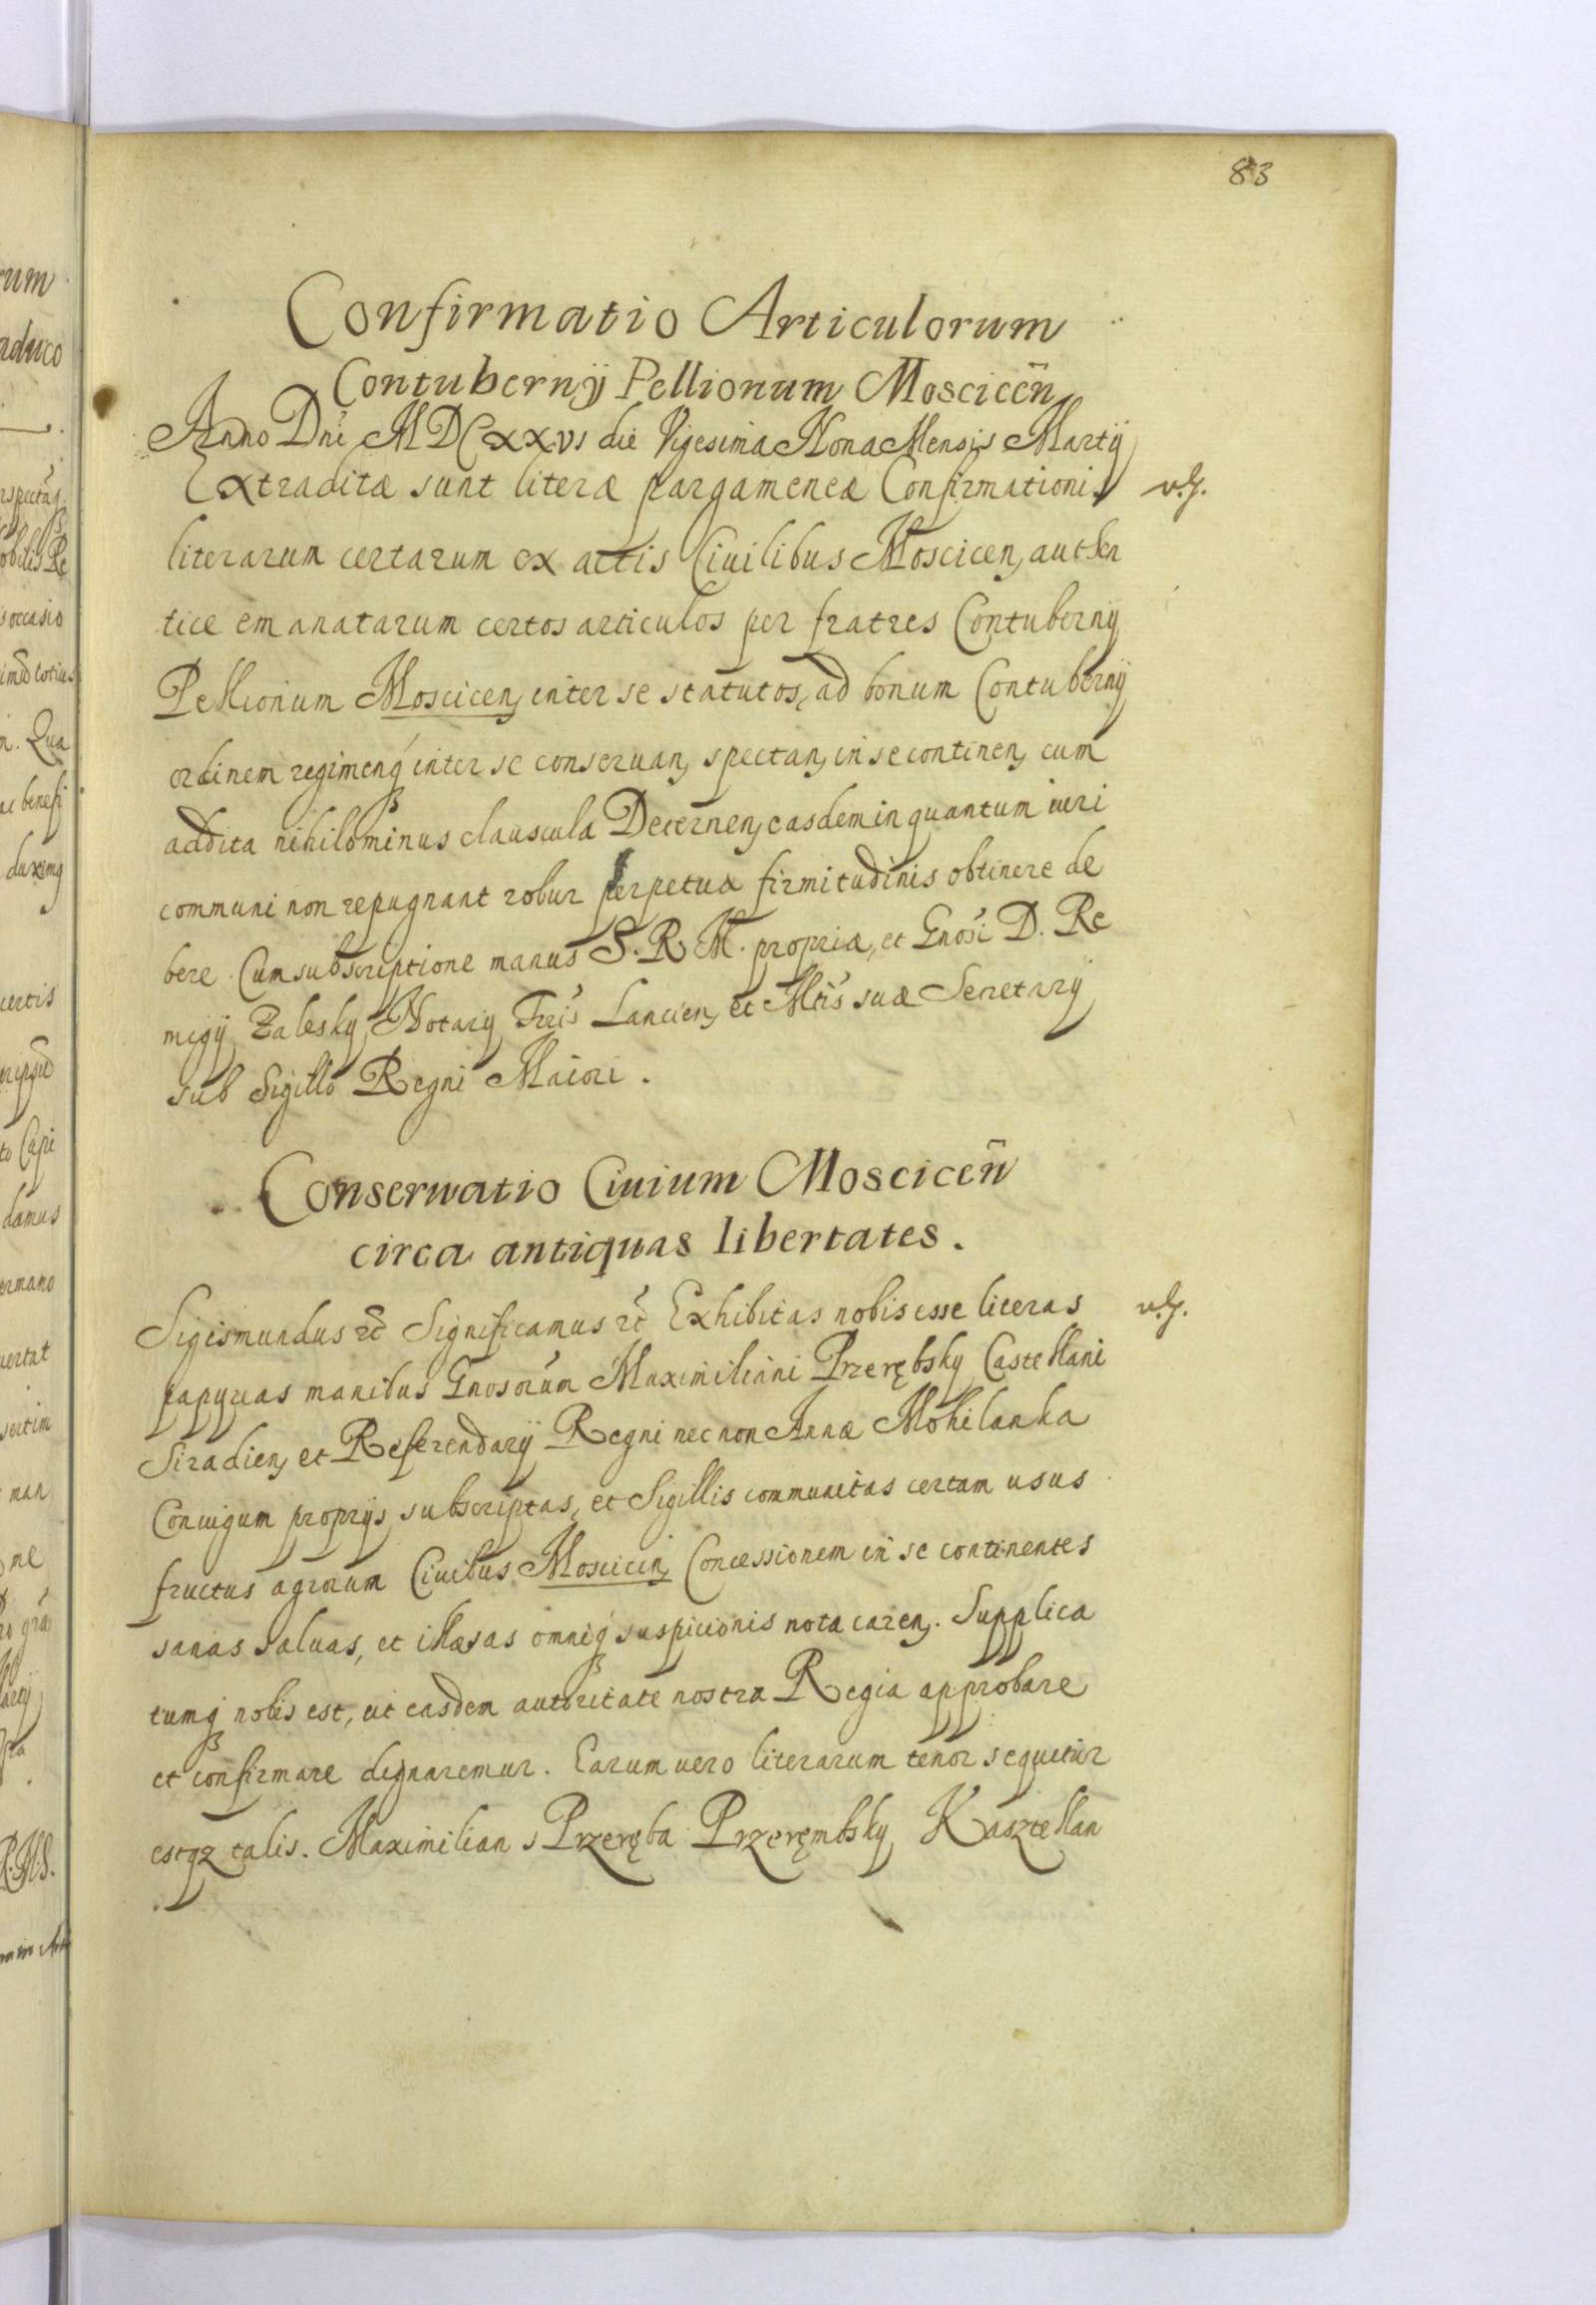 83
Confirmatio Articulorum
Contubernÿ Pellionum Moscicen̄
Anno Dni MDCxxvi die Vigesima Nona Mensis Martÿ
Extraditæ sunt literæ pargameneæ Confirmationis
literarum certarum ex actis Ciuilibus Moscicen, authen
tice emanatarum certos articulos per fratres Contubernÿ
Pellionum Moscicen, inter se statutos, ad bonum Contubernÿ
ordinem regimenq́ inter se conseruan, spectan, in se continen, cum
addita nihilominus clauscula Decernen, easdem in quantum iuri
communi non repugnant robur perpetuæ firmitudinis obtinere de
bere. Cum subscriptione manus S. R. M. propriæ, et Gnosi D. Re
migÿ Zalesky, Notarÿ Trīs Lancicien, et Mtis suæ Secretarÿ
sub Sigillo Regni Maiori.
Conseruatio Ciuium Moscicen̄
circa antiquas libertates.
Sigismundus etc̄ Significamus etc̄ Exhibitas nobis esse literas
papyreas manibus Gnosorum Maximiliani Przerębsky Castellani
Siradien, et Referendarÿ Regni nec non Annæ Mohilanka
Coniugum proprÿs subscriptas, et Sigillis communitas certam usus
fructus agrorum Ciuibus Moscicen, Concessionem in se continentes
sanas saluas, et illæsas omniq́ suspicionis nota caren,. Supplica
tumq́ nobis est, ut easdem autoritate nostra Regia approbare
et confirmare dignaremur. Earum uero literarum tenor sequitur
estqz talis. Maximilian s Przeręba Przerębmsky Kasztellan